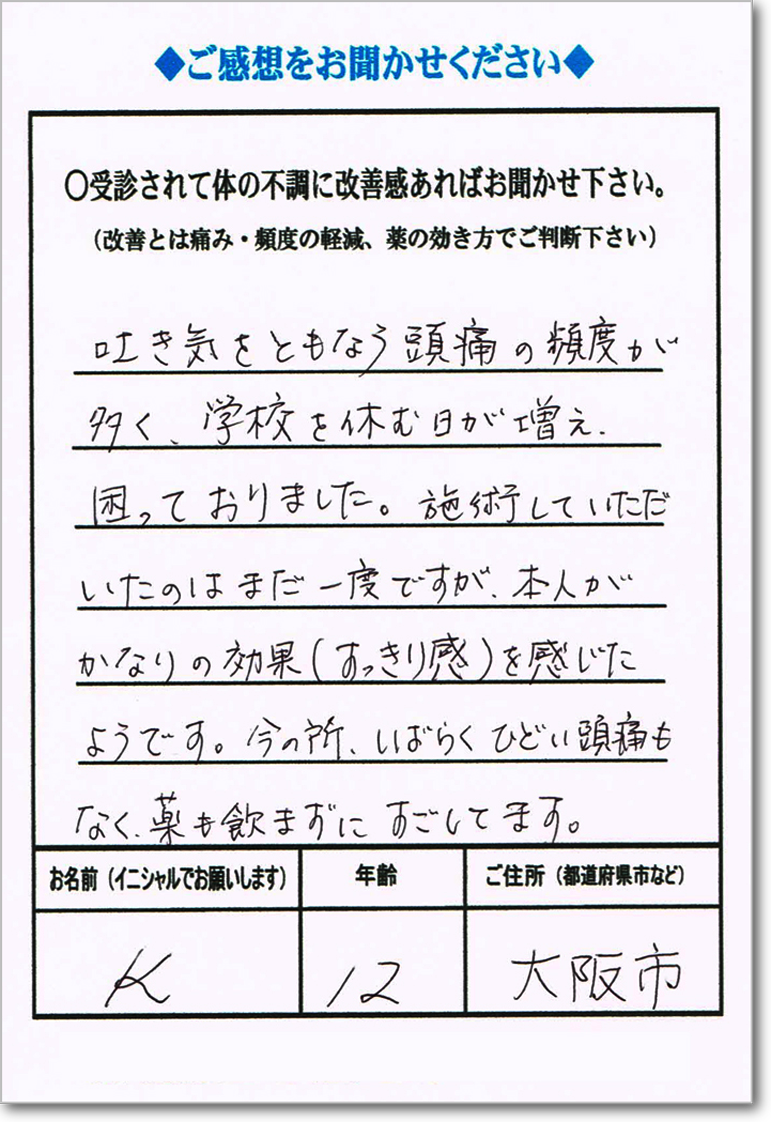 ◆ご感想をお聞かせください◆
〇受診されて体の不調に改善感あればお聞かせ下さい。
（改善とは痛み・頻度の軽減、薬の効き方でご判断下さい）
吐き気をともなう頭痛の頻度が
多く、学校を休む日が増え、
困っておりました。施術していただ
いたのはまだ一度ですが、本人が
かなりの効果(すっきり感)を感じた
ようです。今の所、しばらくひどい頭痛も
なく、薬も飲まずにすごしてます。
お名前（イニシャルでお願いします） 年齢 ご住所（都道府県市など）
K 12 大阪市